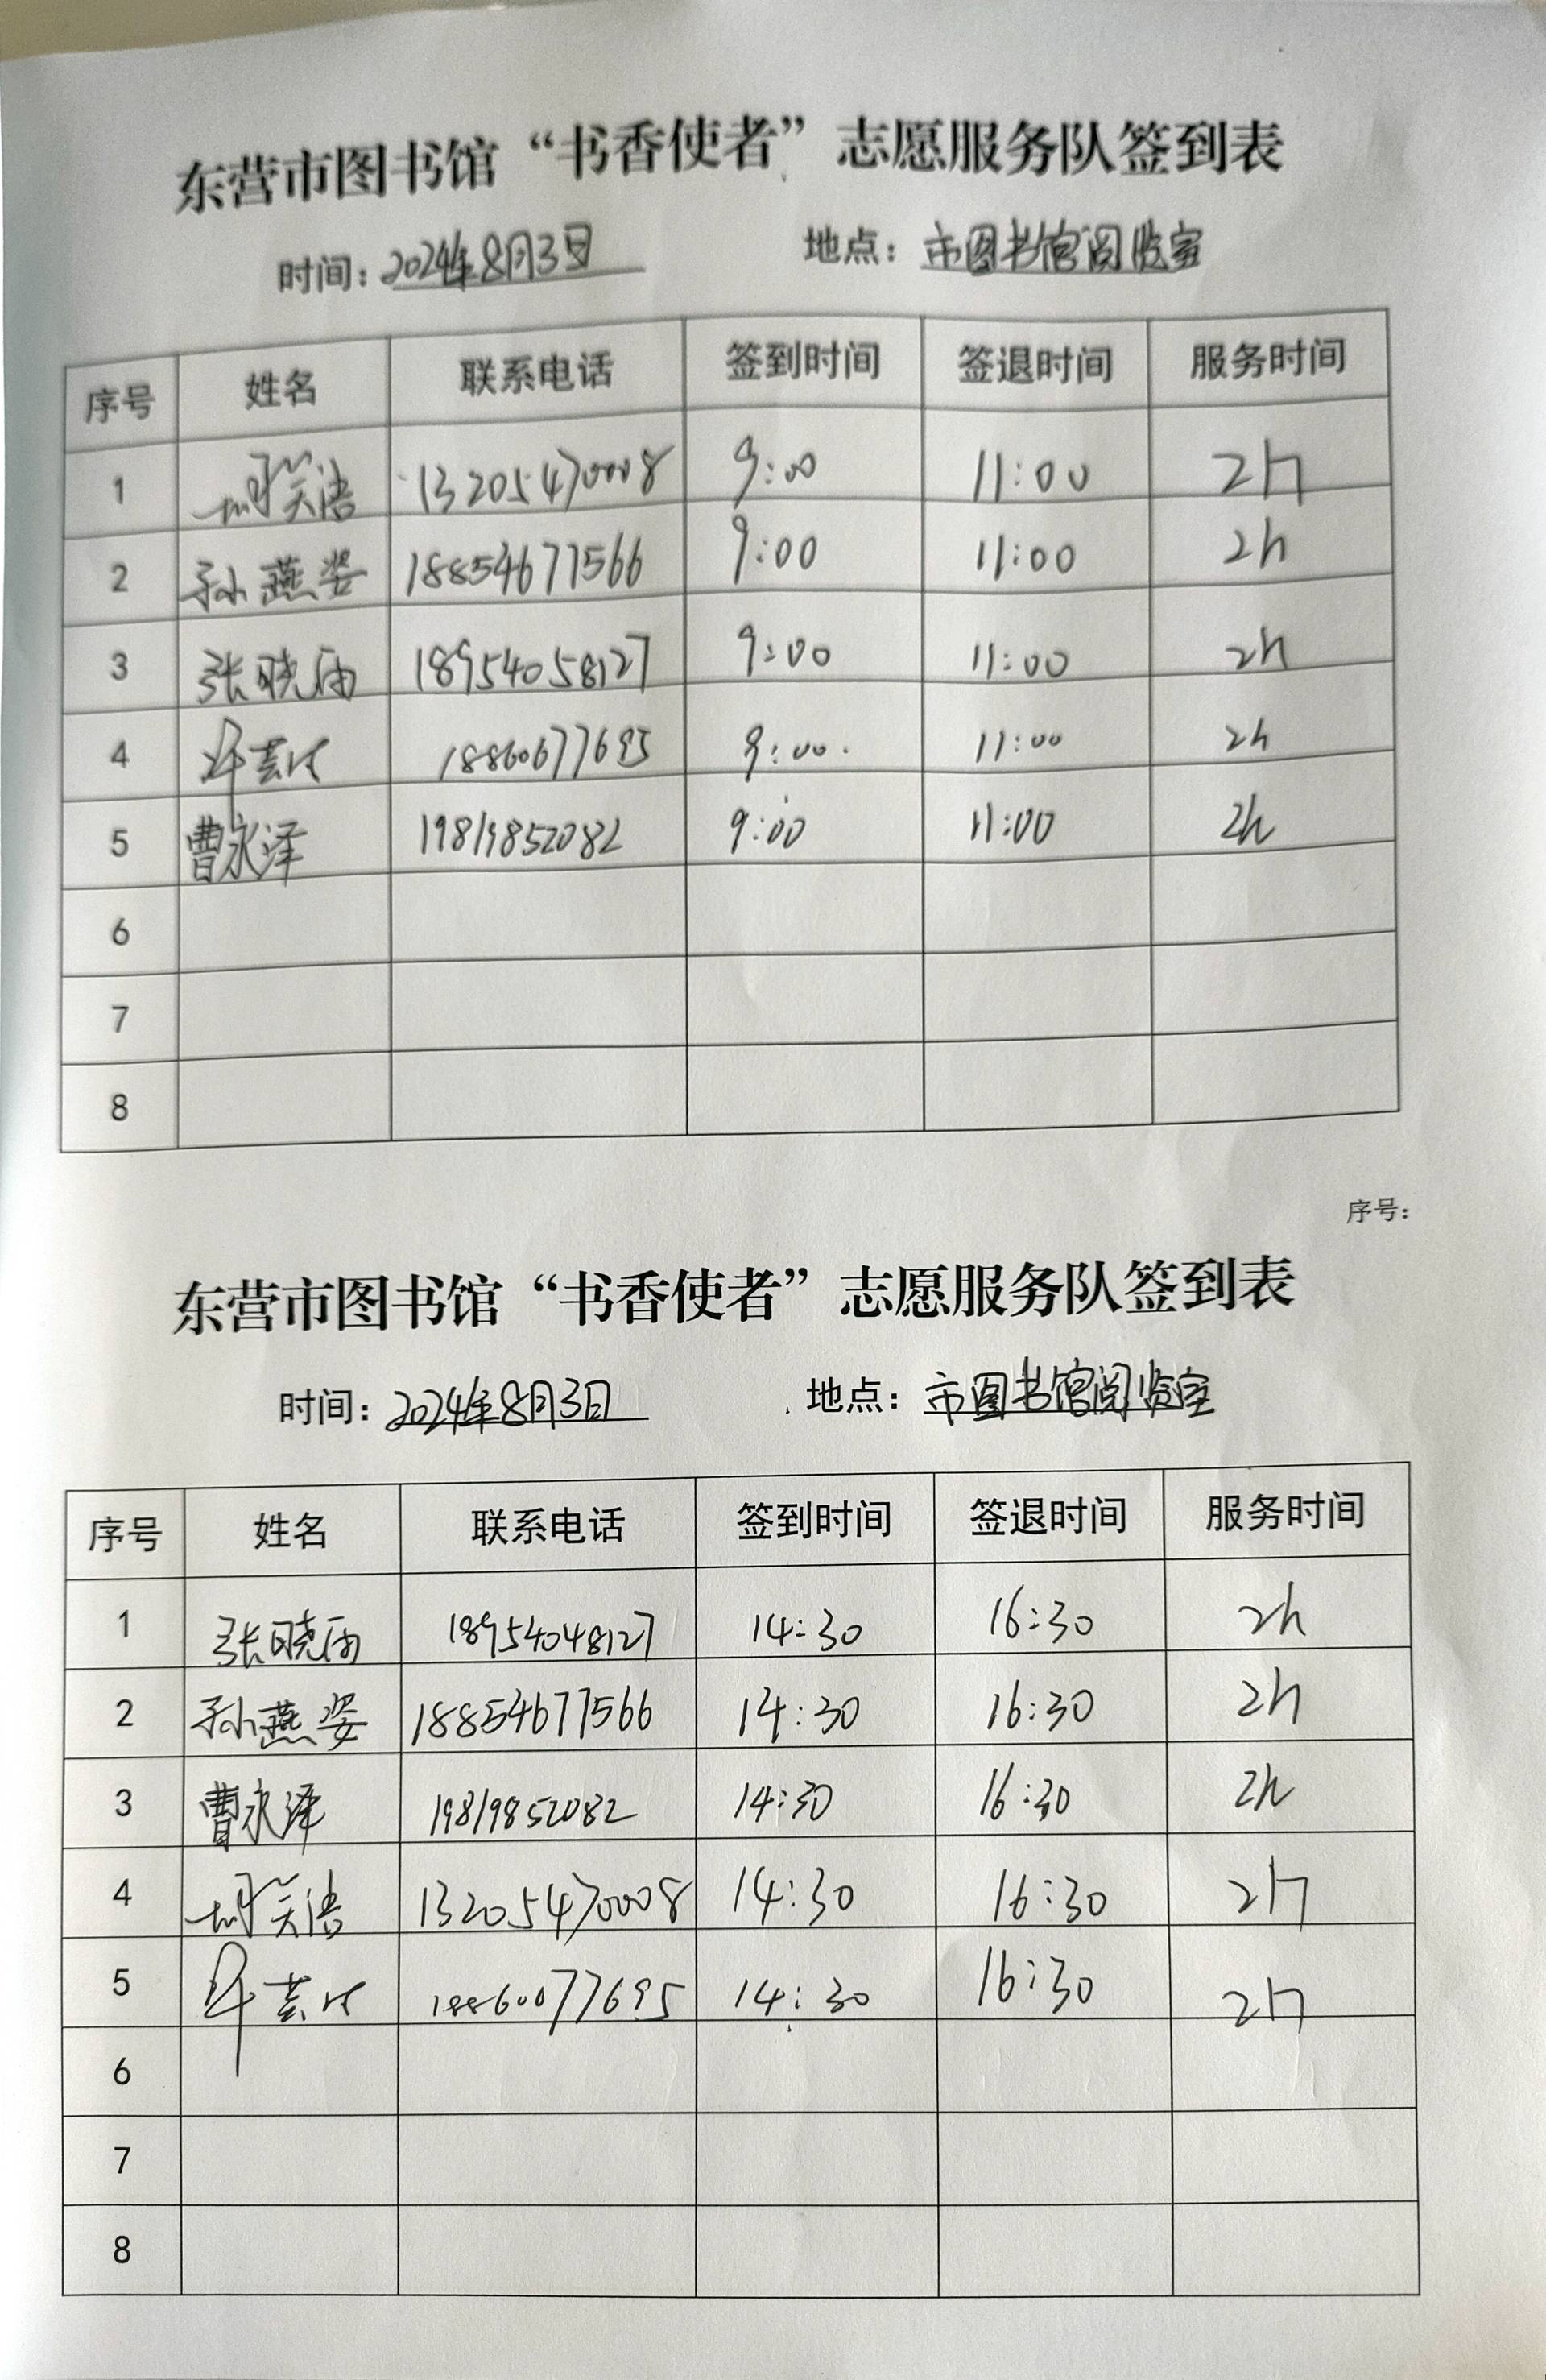 东营市图书馆“书香使者”志愿服务队签到表
时间：2024年8月3日 地点：市图书馆阅览室
序号 姓名 联系电话 签到时间 签退时间 服务时间
1 笑语 13205470008 9:00 11:00 2h
2 孙燕姿 18854677566 9:00 11:00 2h
3 张晓雨 18954058127 9:00 11:00 2h
4 18860677695 9:00 11:00 2h
5 曹永泽 19819852082 9:00 11:00 2h
6
7
8
序号：
东营市图书馆“书香使者”志愿服务队签到表
时间：2024年8月3日 地点：市图书馆阅览室
序号 姓名 联系电话 签到时间 签退时间 服务时间
1 张晓雨 18954048127 14:30 16:30 2h
2 孙燕姿 18854677566 14:30 16:30 2h
3 曹永泽 19819852082 14:30 16:30 2h
4 笑语 13205470008 14:30 16:30 2h
5 18860077695 14:30 16:30 2h
6
7
8